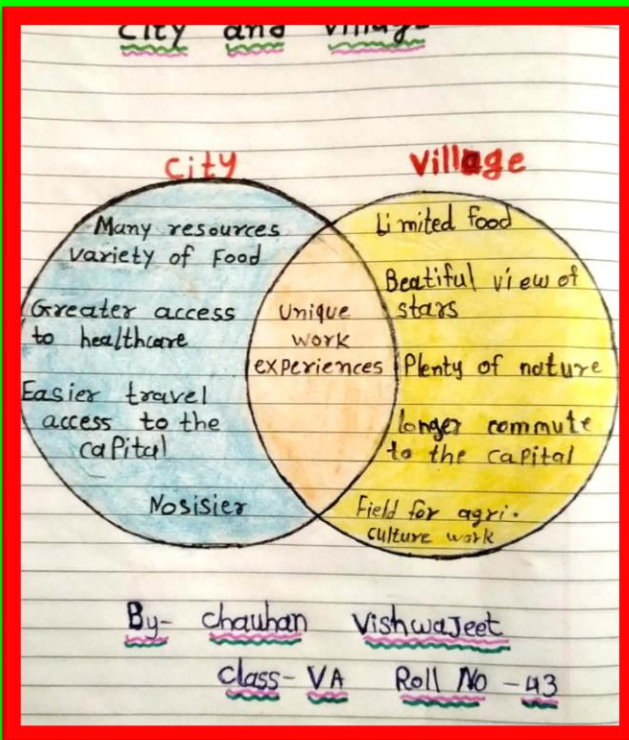 City and Village
City
Village
Many resources
variety of Food
Greater access
to healthcare
Easier travel
access to the
caPital
Nosisier
Unique
work
experiences
Limited food
Beatiful view of
stars
Plenty of nature
longer commute
to the capital
Field for agri.
culture work
By- chauhan Vishwajeet
Class- VA Roll No - 43